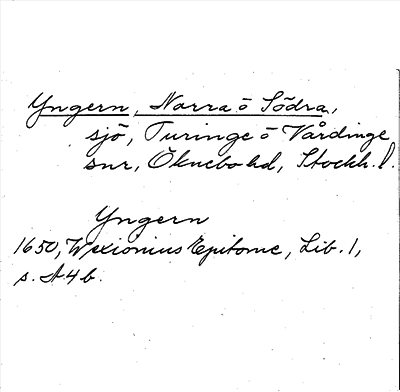 Yngern, Norra o Södra,
sjö, Turinge o Vårdinge
snr, Öknebo hd, Stockh. l.
Yngern
1650, Wexionius Epitome, Lib. 1,
s. A4b.